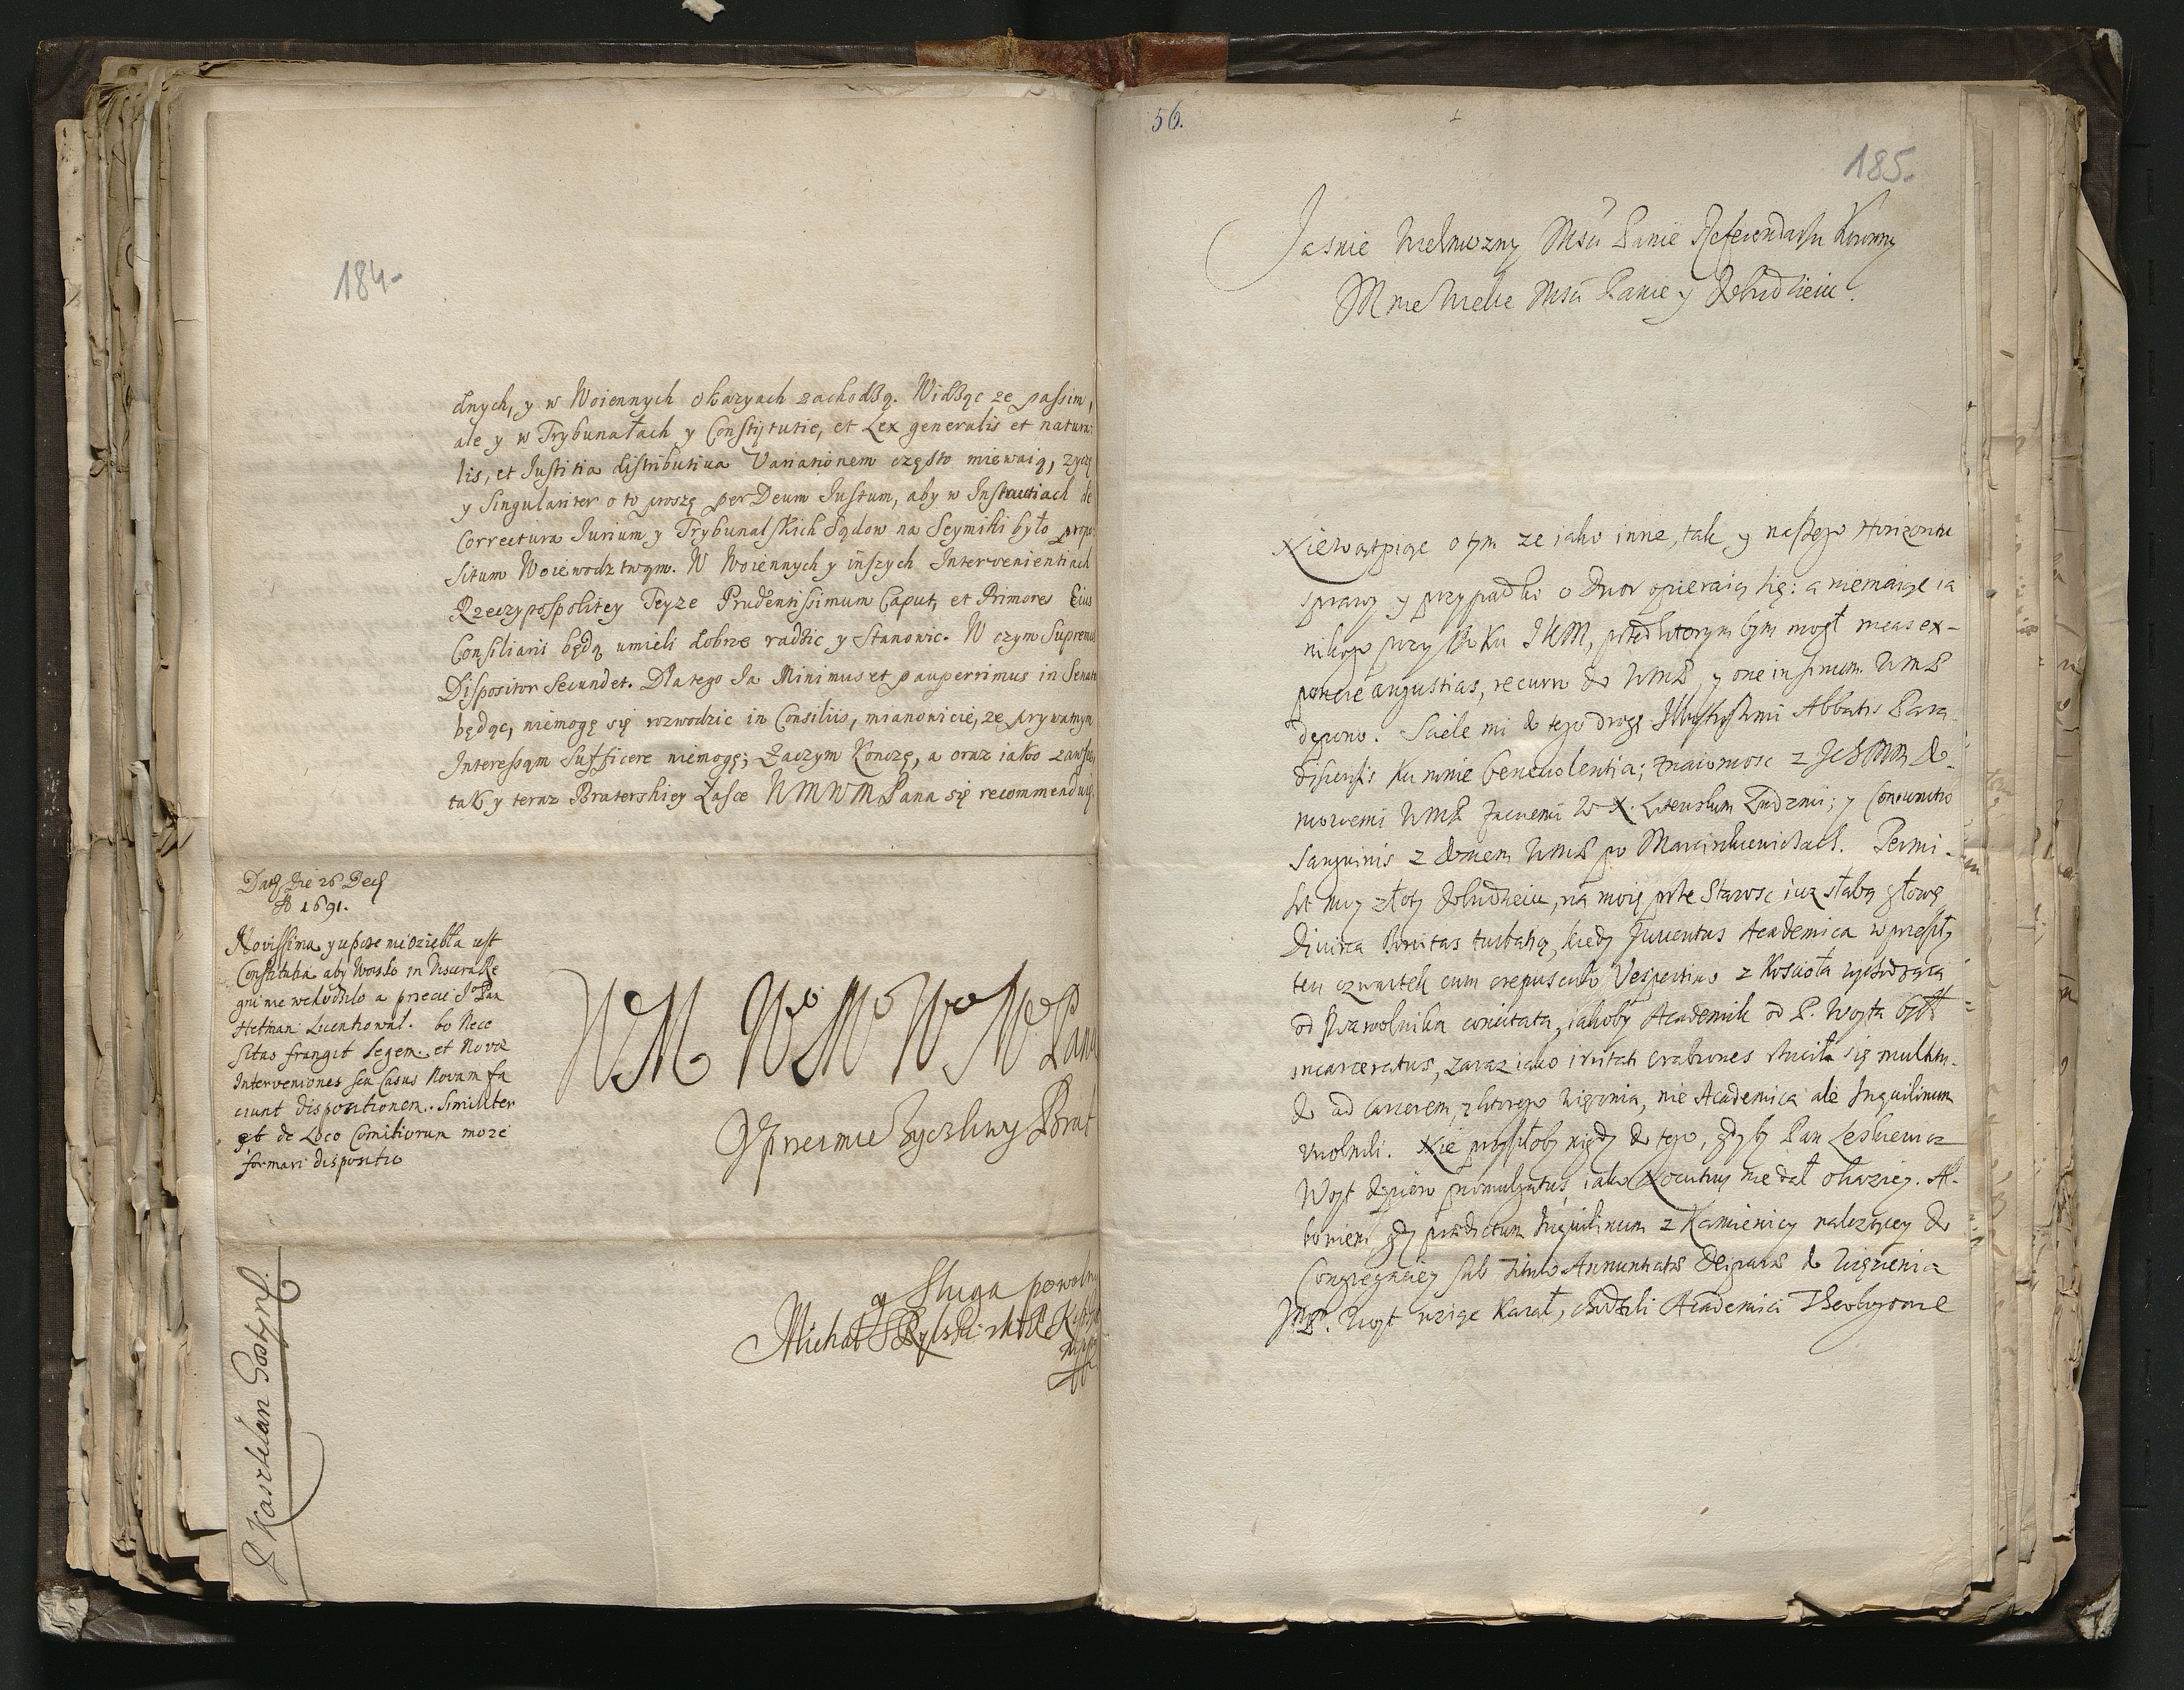 184.
dnych, y w Woiennych okazyach zachodzą. Widząc ze passim,
ale y w Trybunałach y Constytutie, et Lex generalis et natura:
lis, et Justitia distributiva Variationem często miewaią, zyczę
y Singulariter o to proszę per Deum Justum, aby w Instructiach de
Correctura Iurium y Trybunalskich Sądow na Seymiki było propo
situm Woiewodztwąm. W Woiennych y inszych Intervenientiach
Rzeczypospolitey Teyze Prudentissimum Caput, et Primores Eius
Consiliarii będą umieli dobrze radzic y Stanowic. W czym Supremus
Dispositor Secundet. Dlatego Ia Minimus et pauperrimus in Senatu
będąc, niemogę się rozwodzic in Consiliis, mianowicie, ze prywatnym
Interessąm Sufficere niemogę; Zaczym Konczę, a oraz iako zawsze
tak y teraz Braterskiey Łasce WMWMPana się recommenduię.
Datt Die 26 Dec
A 1691.
Novissima y upore niedziebła est
Constitutia aby Woysko in Viscera Re
gni nie wchodziło a przecie Jo Pan
Hetman Licentiował. bo Nece
sitas frangit Legem. et Novæ
Interveniones seu Casus Novam fa
ciunt dispositionem. Similiter
et de Loco Comitiorum moze
formari dispositio
WM Wo Mo Wo Mo Pana
Uprzeimie Zyczliwy Brat
y Sluga powolny
Michał Rylski
J Kasztelan Gostyn.
56.
185.
Jasnie Wielmozny Msci Panie Referendarzu Koronny
Mnie Wielce Msci Panie y Dobrodzieiu.
Niewątpiąc o tym ze iako inne, tak y naszego Horizontu
sprawy y przypadki o Dwor opieraią się: a niemaiąc ia
nikogo przy Boku JKM, przed ktorym bym mogł meas ex-
ponere angustias, recurro do WMP, y one in sinum WMP
depono. Sciele mi do tego drogę Illustrissimi Abbatis Para
disiensis ku mnie benevolentia; znaiomosc z JchMM do-
mowemi WMP Ludzmi; y Coniunctio
Sanguinis z domem WMP po Marcinkiewiczach. Permi-
sit moy złoty Dobrodzieiu, na moię prze Starosc iuz słabą głowę
Divina Bonitas turbatią, kiedy Juventus Academica w przeszły
ten czwartek cum crepusculo Vespertino z Koscioła wychodząca
od swawolnika concitata, iakoby Academik od P. Woyta był
incarceratus, zaraz iako irritati crabrones rzuciła się multitu-
do ad Carcerem, z ktorego więznia, nie Academica ale Inquilinum
uwolnili. Nie przyszłoby nigdy do tego, gdyby Pan Leskiewicz
Woyt dopiero promulgatus, iako nie dał okaziey. Al-
bowiem gdy prædictum Inquilinum z Kamienicy nalezącey do
Congregaciey sub titulo Annuntiatæ Deiparæ do więzienia
P. Woyt wziąc Kazał, chodzili Academici